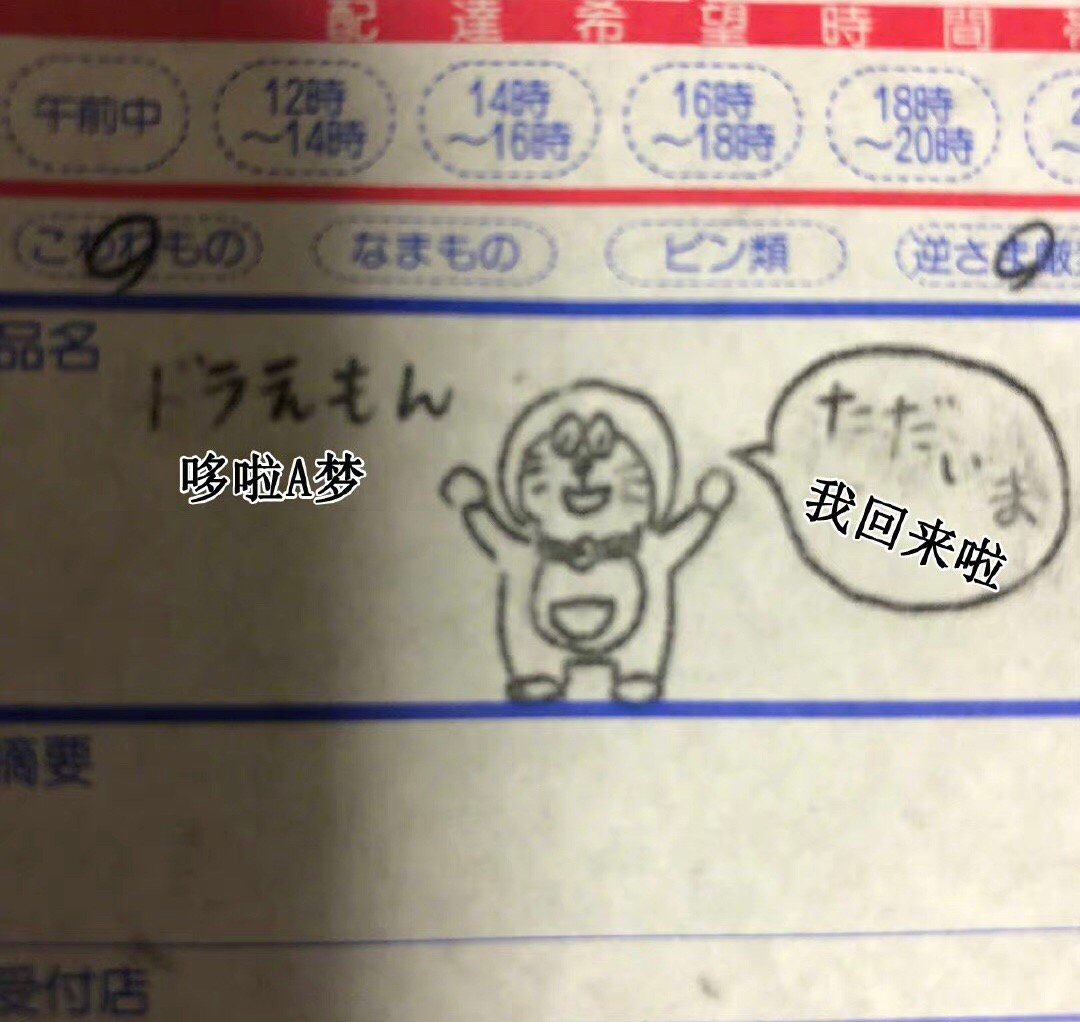 配達希望時間
午前中
12時
～14時
14時
～16時
16時
～18時
18時
～20時
こわれもの
なまもの
ビン類
逆さま厳
品名
ドラえもん
哆啦A梦
ただいま
我回来啦
摘要
受付店